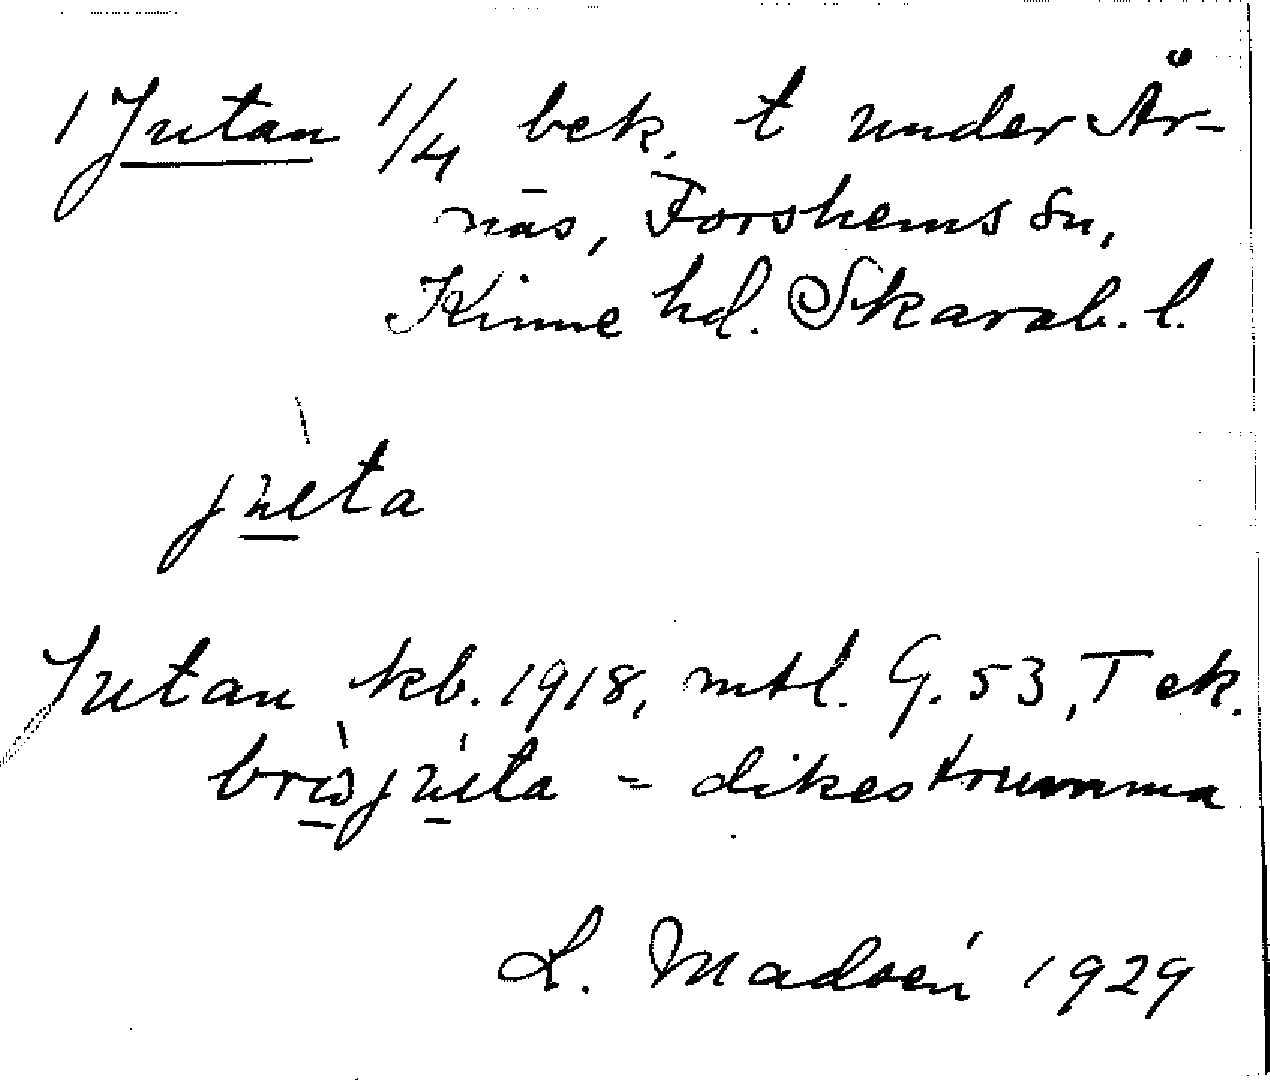 1 Jutan 1/4 bek. t under År-
näs, Forshems sn,
Kinne hd. Skarab. l.
juta
Jutan kb. 1918, mtl. G. 53, T ek.
juta = dikestrumma
L. Madsén 1929